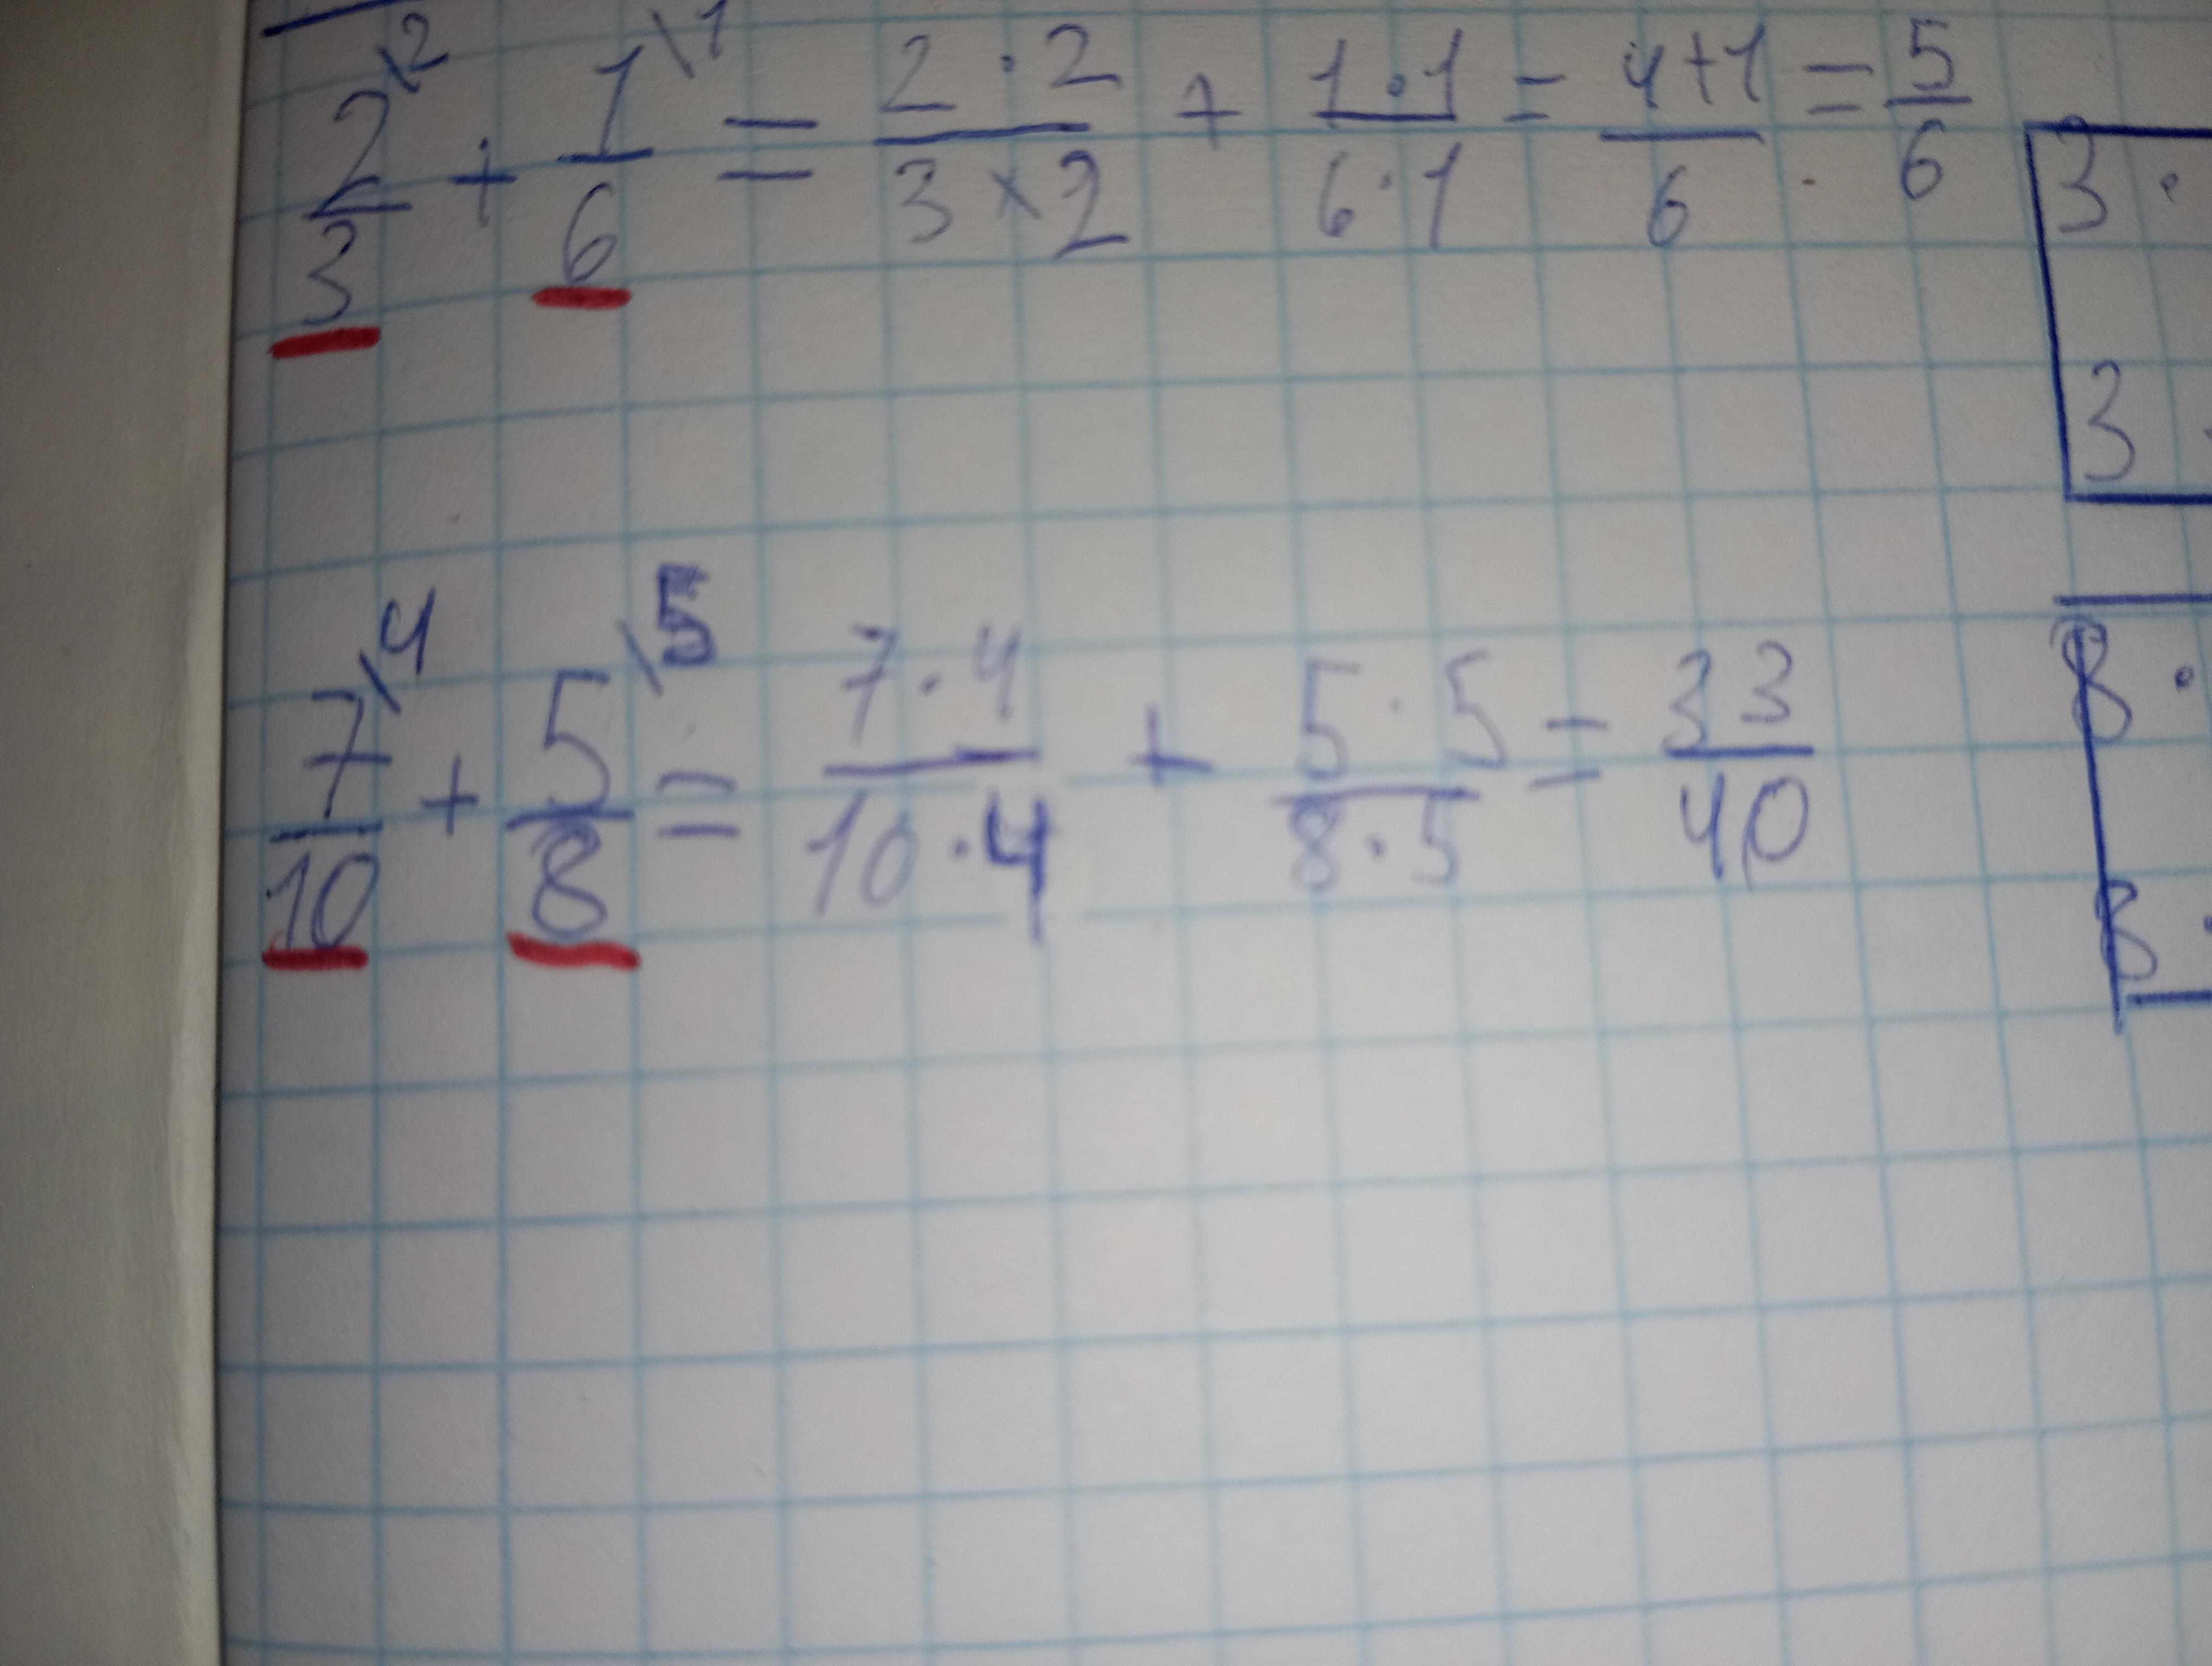 2/3 \2 + 1/6 \1 = 2·2/3×2 + 1·1/6·1 = 4+1/6 = 5/6
3 ·
3
7/10 \4 + 5/8 \5 = 7·4/10·4 + 5·5/8·5 = 33/40
8 ·
8 ·